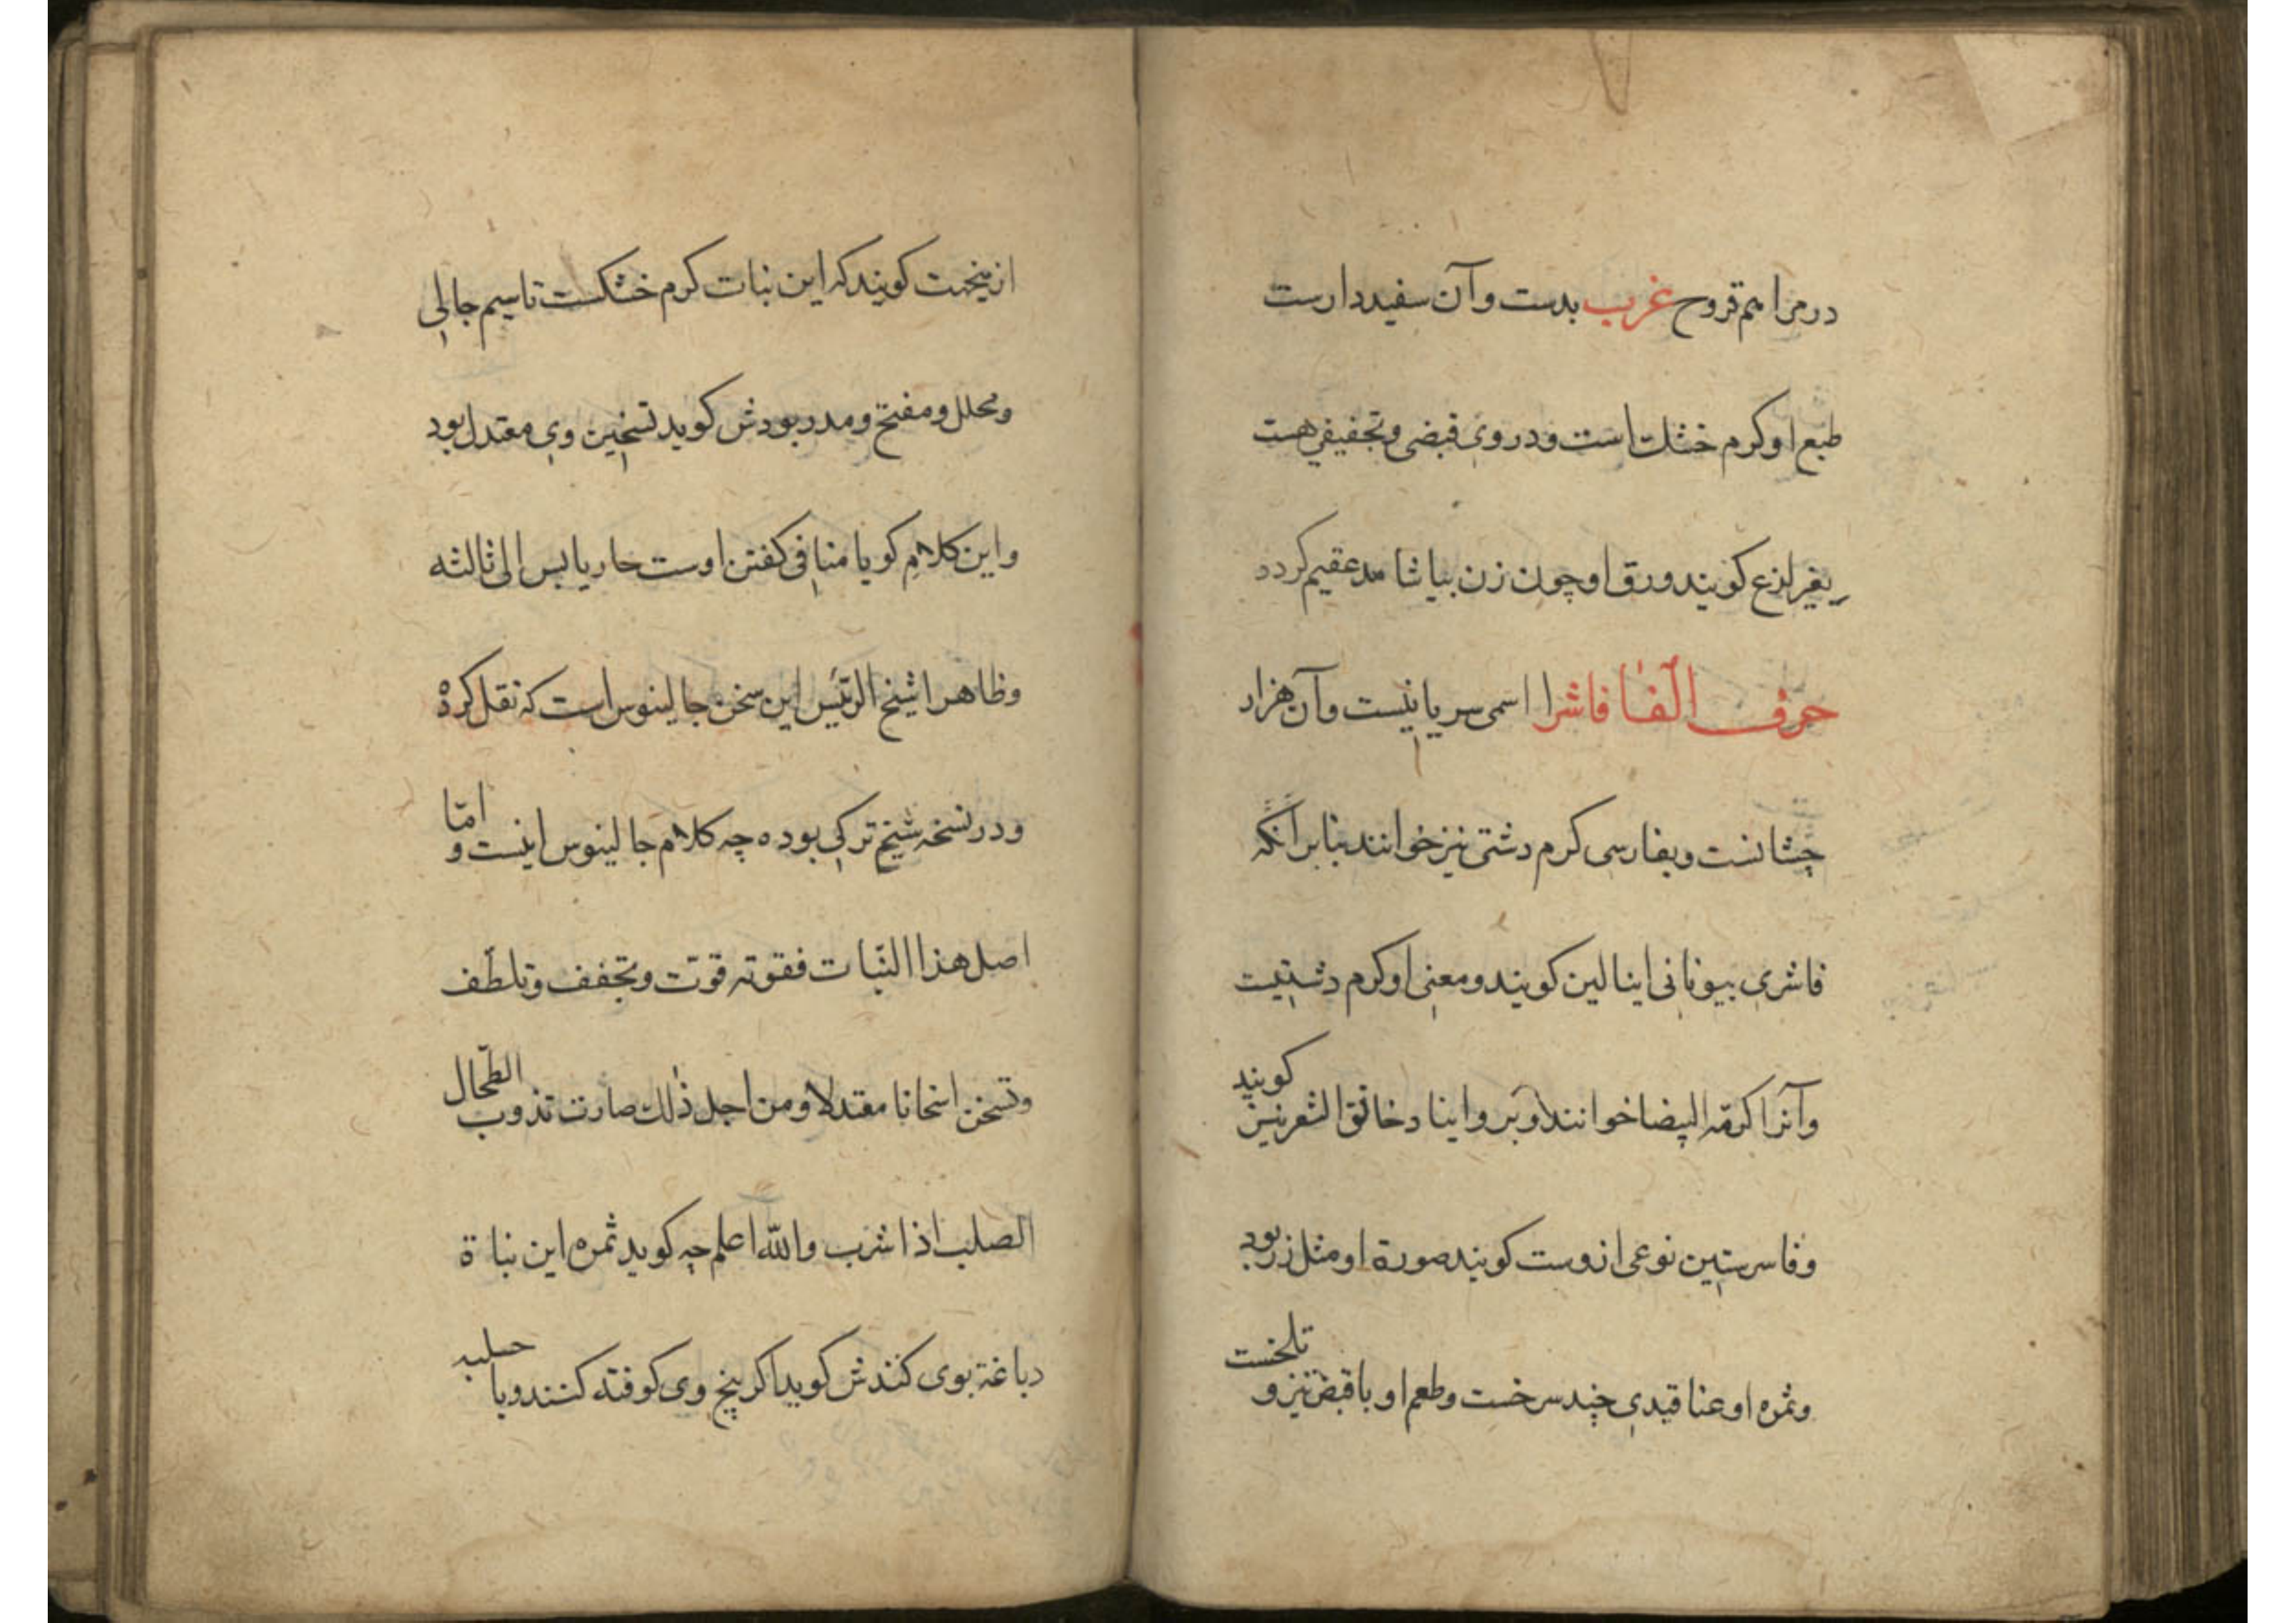 در مراهم قروح غرب بدست و آن سفیددارست
طبع او کرم خشک است و در وی قبضی و تجفیفی هست
بغیر لزع کویند ورق او چون زن بیاشامد عقیم کردد
حرف الفا فاشرا اسمی سریانیست و آن هزار
چشانست و بفارسی کرم دشتی نیز خوانند بنابر آنکه
فاشری بیونانی اینالین کویند و معنی او کرم دشتیست
و آنرا کرمة البیضا خوانند و حالق الشعر نیز کویند
و فاسرستین نوعی ازوست کویند صورة او مثل زر بود
و ثمره او عناقیدی چند سرخست و طعم او با قبض نیز و تلخست
ازینجهت کویند که این نبات کرم خشکست تا سیم جالی
و محلل و مفتح و مدر بود ش کوید تسخین وی معتدل بود
و این کلام کویا منافی کفتن اوست حار یابس الی ثالثه
و ظاهرا شیخ الرئیس این سخن جالینوس است که نقل کرده
و در نسخه شیخ ترکی بوده چه کلام جالینوس اینست و امّا
اصل هذا النّبات فقوته قوّت و تجفف و تلطّف
و تسخن اسخانا معتدلا و من اجل ذلك صارت تذوب الطّحال
الصلب اذا شرب و الله اعلم چه کوید ثمره این نباة
دباغة بوی کنند ش کوید اکر بیخ وی کوفته کنند و با حلبه